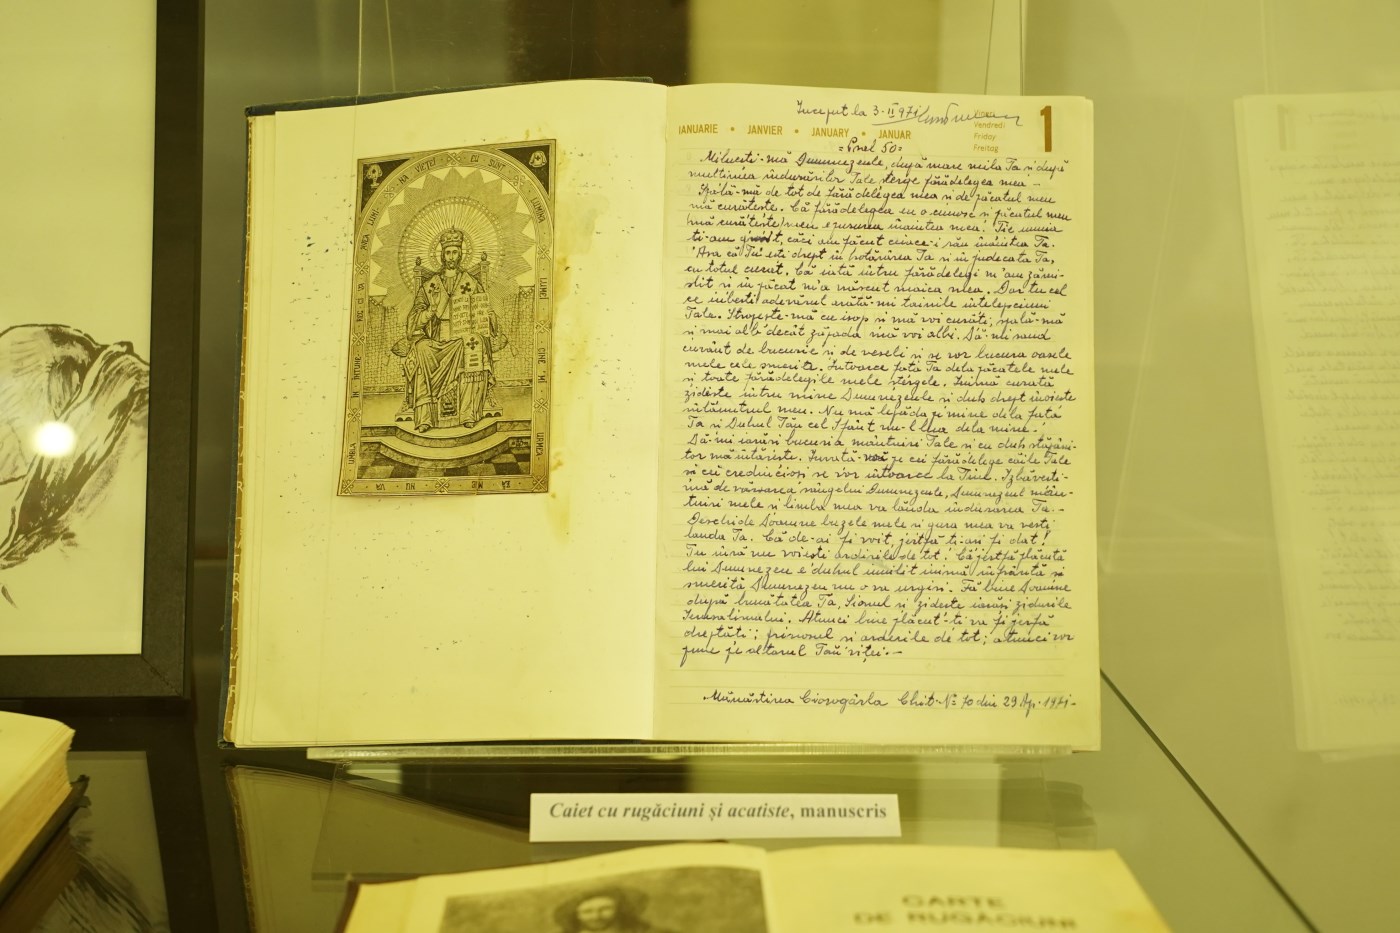 Început la 3-II 971
IANUARIE • JANVIER • JANUARY • JANUAR
Vendredi
Friday
Freitag
1
=Psal 50=
Miluiesti-mă Dumnezeule, după mare mila Ta si după
multimea îndurărilor Tale sterge fărădelegea mea -
Spălă-mă de tot de fărădelegea mea si de păcatul meu
mă curăteste. Că fărădelegea eu o cunosc si păcatul meu
(mă curăteste) meu e pururea înaintea mea. Tie unuia
ti-am gresit, căci am făcut ceiace-i rău înaintea Ta.
Asa că Tu esti drept în hotărârea Ta si în judecata Ta,
cu totul curat. Că iată întru fărădelegi m'am zămi-
slit si în păcat m'a născut maica mea. Dar tu cel
ce iubesti adevărul arată-mi tainile intelepciunii
Tale. Stropeste-mă cu isop si mă voi curăti; spală-mă
si mai alb decât zăpada mă voi albi. Dă-mi sand
cuvânt de bucurie si de veseli si se vor bucura oasele
mele cele smerite. Intoarce fată Ta dela păcatele mele
si toate fărădelegile mele stergele. Inimă curată
zideste întru mine Dumnezeule si duh drept inoieste
înlăuntrul meu. Nu mă lepăda pe mine dela fată
Ta si Duhul Tău cel Sfânt nu-l lua dela mine.
Dă-mi iarăsi bucuria mântuirii Tale si cu duh stăpâni-
tor mă intăreste. Invătă-voi pe cei fărădelege căile Tale
si cei credinciosi se vor intoarce la Tine. Izbăvesti-
mă de vărsarea sângelui Dumnezeule, Dumnezeul mân-
tuirii mele si limba mea va lăuda îndurarea Ta.-
Deschide Doamne buzele mele si gura mea va vesti
lauda Ta. Că de-ai fi voit, jertfă ti-asi fi dat!
Tu însă nu voiesti arderile de tot. Că jertfă plăcută
lui Dumnezeu e duhul umilit inimă înfrântă si
smerită Dumnezeu nu o va urgisi. Fă bine Doamne
după bunătatea Ta, Sionul si zideste iarăsi zidurile
Ierusalimului. Atunci bine plăcut-ti va fi jertfă
dreptătii; prinosul si arderile de tot; atunci vor
pune pe altarul Tău vitei.-
Mănăstirea Ciorogârla Chit. № 70 din 29 Ap. 1971-
UMBLA ÎN INTUNERIC CI VA AVEA LUMI NA VIETEI EU SUNT LUMINA LUMEI CINE MI URMEA ZĂ MIE NU VA
Caiet cu rugăciuni și acatiste, manuscris
CARTE
DE RUGĂCIUNI